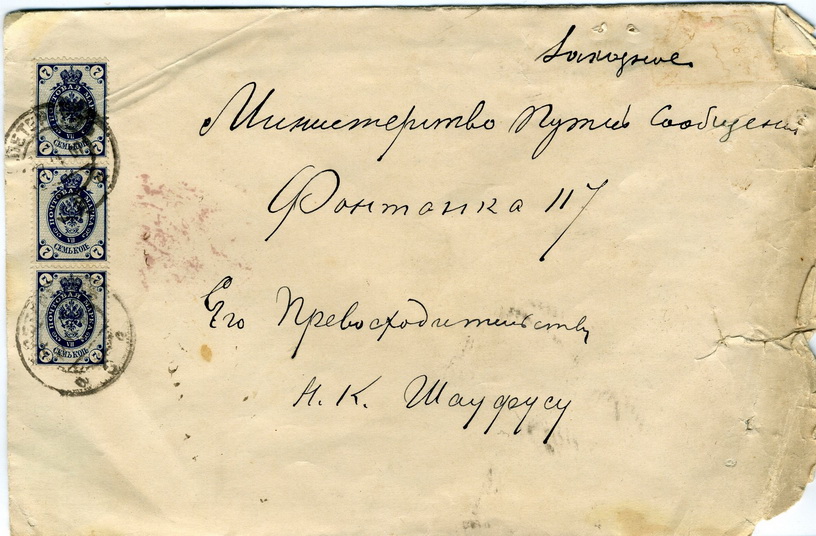 Заказное
Министерство Путей Сообщенія
Фонтанка 117
Его Превосходительству
Н. К. Шауфусу
7 7
ПОЧТОВАЯ МАРКА
VII
СЕМЬ КОП.
7 7
7 7
ПОЧТОВАЯ МАРКА
VII
СЕМЬ КОП.
7 7
7 7
ПОЧТОВАЯ МАРКА
VII
СЕМЬ КОП.
7 7